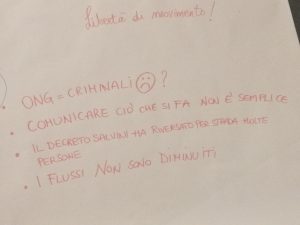 Libertà di movimento!
• ONG = CRIMINALI ☹ ?
• COMUNICARE CIÒ CHE SI FA NON È SEMPLICE
• IL DECRETO SALVINI HA RIVERSATO PER STRADA MOLTE
PERSONE
• I FLUSSI NON SONO DIMINUITI